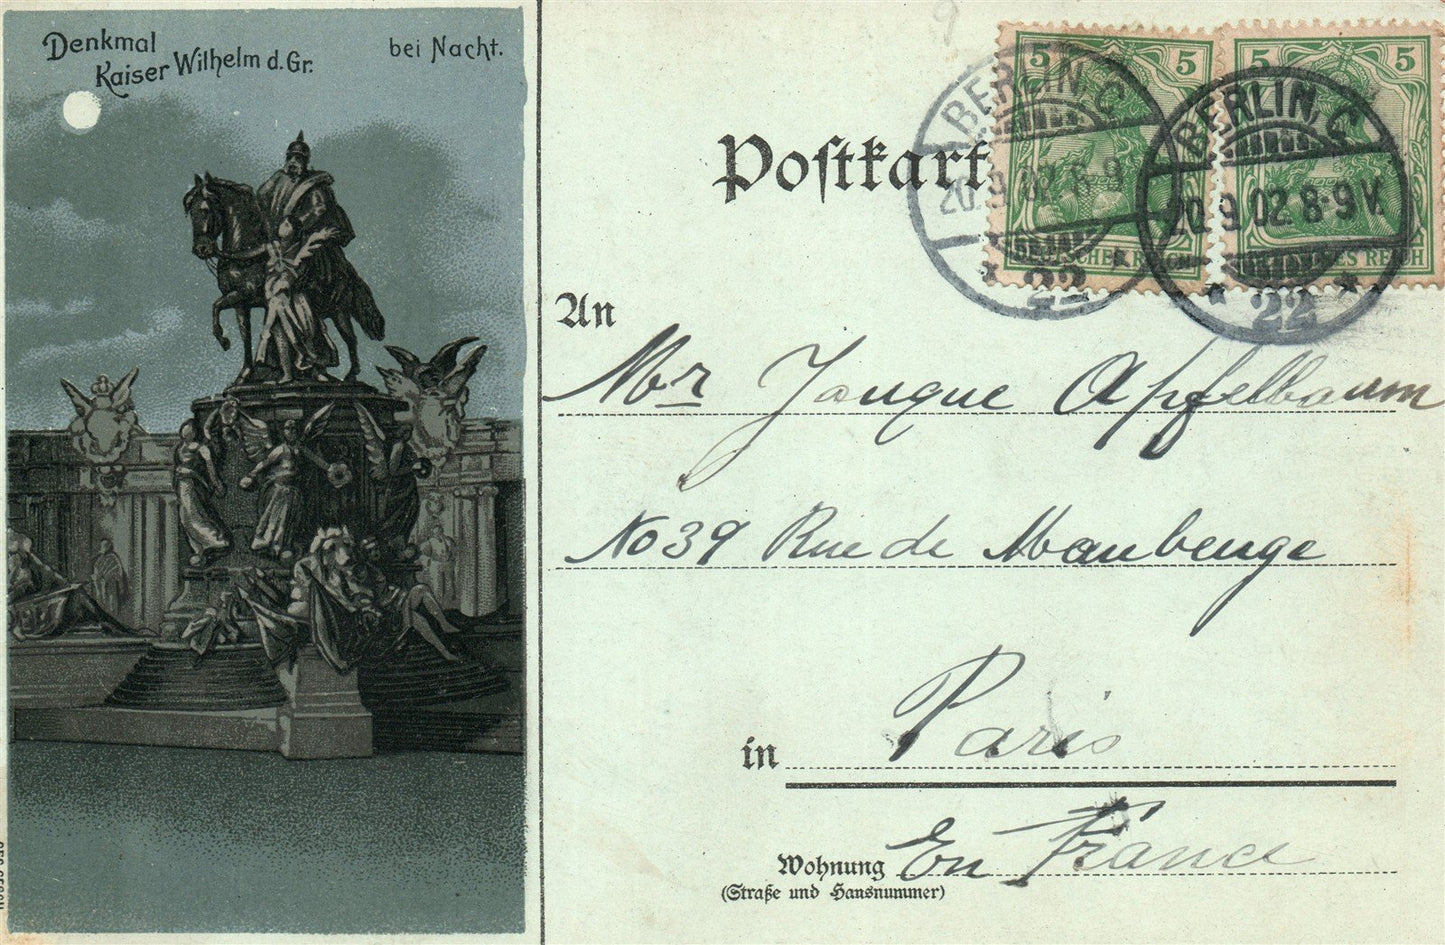 Denkmal
Kaiser Wilhelm d. Gr.
bei Nacht.
9
Postkart
5 5
DEUTSCHES REICH
5 5
DEUTSCHES REICH
BERLIN, C
20.9.02. 8-9
22
BERLIN, C
20.9.02. 8-9V.
22
An
Mr Jauque Apfelbaum
No 39 Rue de Maubeuge
in Paris
Wohnung En France
(Straße und Hausnummer)